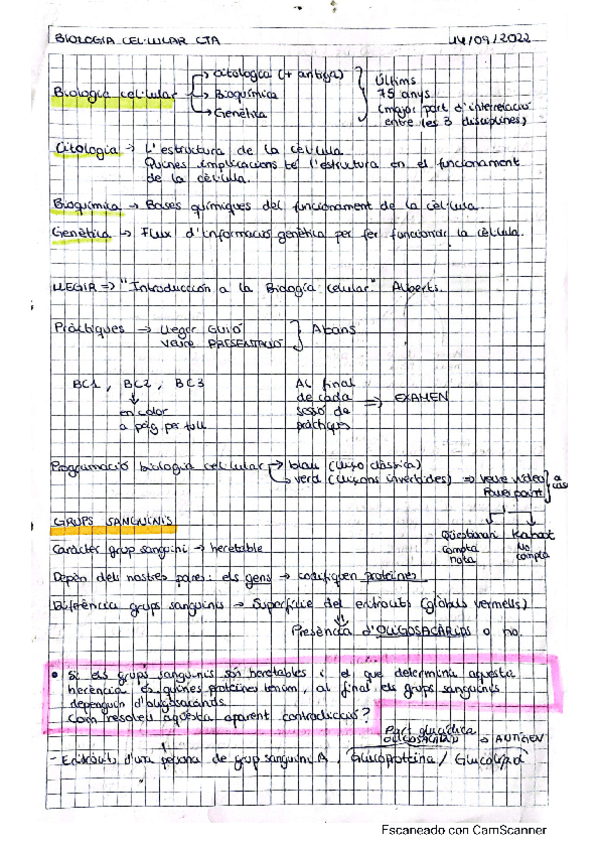 BIOLOGIA CEL·LULAR CTA 14/09/2022
Biologia cel·lular → citologia (+ antiga)
→ Bioquímica
→ Genètica
Últims
75 anys
(major part d'interrelació
entre les 3 disciplines)
Citologia → L'estructura de la cèl·lula.
Quines implicacions té l'estructura en el funcionament
de la cèl·lula.
Bioquímica → Bases químiques del funcionament de la cèl·lula.
Genètica → Flux d'informació genètica per fer funcionar la cèl·lula.
LLEGIR => "Introducción a la Biología celular" Alberts.
Pràctiques → Llegir GUIÓ
veure PRESENTACIÓ
Abans
BC1, BC2, BC3
↓
en color
a pàg per full
AL final
de cada
sessió de
pràctiques
=> EXAMEN
Programació biologia cel·lular → blau (lliçó clàssica)
→ verd (lliçons invertides) => veure vídeo
Power point
a casa
Qüestionari Kahoot
compta
nota
No
compta
GRUPS SANGUINIS
Caràcter grup sanguini → heretable
Depèn dels nostres pares: els gens → codifiquen proteïnes
Diferència grups sanguinis → Superfície del eritròcits (glòbuls vermells)
Presència d'OLIGOSACÀRIDS o no.
• Si els grups sanguinis són heretables i el que determina aquesta
herència és quines proteïnes tenim, al final els grups sanguinis
depenguin d'oligosacàrids
com resoleu aquesta aparent contradicció?
Part glucídica
OLIGOSACÀRID → ANTIGEN
- Eritròcits d'una persona de grup sanguini A, Glucoproteïna / Glucolípid
Escaneado con CamScanner